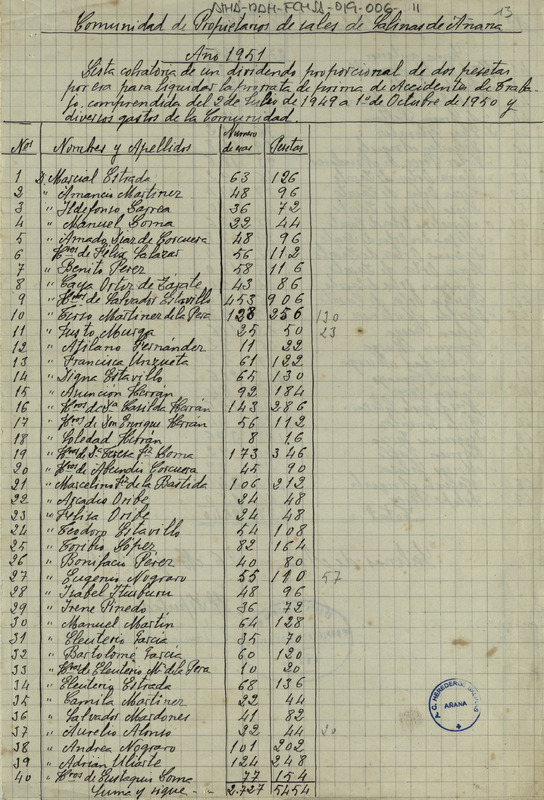 13
Comunidad de Propietarios de sales de Salinas de Añana
Año 1951
Lista cobratoria de un dividendo proporcional de dos pesetas
por era para liquidar la prorrata de prima de Accidentes de Traba-
jo, comprendida del 2 de Julio de 1949 a 1º de Octubre de 1950 y
diversos gastos de la Comunidad.
Nos Nombres y Apellidos Numero de eras Pesetas
1 D. Marcial Estrada 63 126
2 " Amancio Martinez 48 96
3 " Ildefonso Larrea 36 72
4 " Manuel Loma 22 44
5 " Amado Diaz de Corcuera 48 96
6 Hros de Felix Salazar 56 112
7 " Benito Perez 58 116
8 " Caya Ortiz de Zarate 43 86
9 " Hros de Salvador Estavillo 453 906
10 " Tirso Martinez de la Pera 128 256 130
11 " Justo Murga 25 50 23
12 " Atilano Fernández 11 22
13 " Francisca Unzueta 61 122
14 " Digna Estavillo 65 130
15 " Asunción Herrán 92 184
16 " Hros de Da Casilda Herrán 143 286
17 " Hros de Don Enrique Herran 56 112
18 " Soledad Herrán 8 16
19 " Hros de Da Teresa Fz Loma 173 346
20 " Hros de Abundio Corcuera 45 90
21 " Marcelino Fz de la Bastida 106 212
22 " Arcadio Oribe 24 48
23 " Felisa Oribe 24 48
24 " Teodoro Estavillo 54 108
25 " Toribio López 82 164
26 " Bonifacio Pérez 40 80
27 " Eugenio Nograro 55 110 57
28 " Isabel Iturburu 48 96
29 " Irene Pinedo 36 72
30 " Manuel Martin 64 128
31 " Eleuterio Garcia 35 70
32 " Bartolomé Garcia 60 120
33 " Hros de Eleuterio Mz de la Pera 10 20
34 " Eleuterio Estrada 68 136
35 " Camila Martinez 22 44
36 " Salvador Mardones 41 82
37 " Aurelio Alonso 22 44 20
38 " Andrea Nograro 101 202
39 " Adrian Uriarte 124 248
40 " Hros de Eustaquio Loma 77 154
Suma y sigue - - 2.727 5454
AÑANA